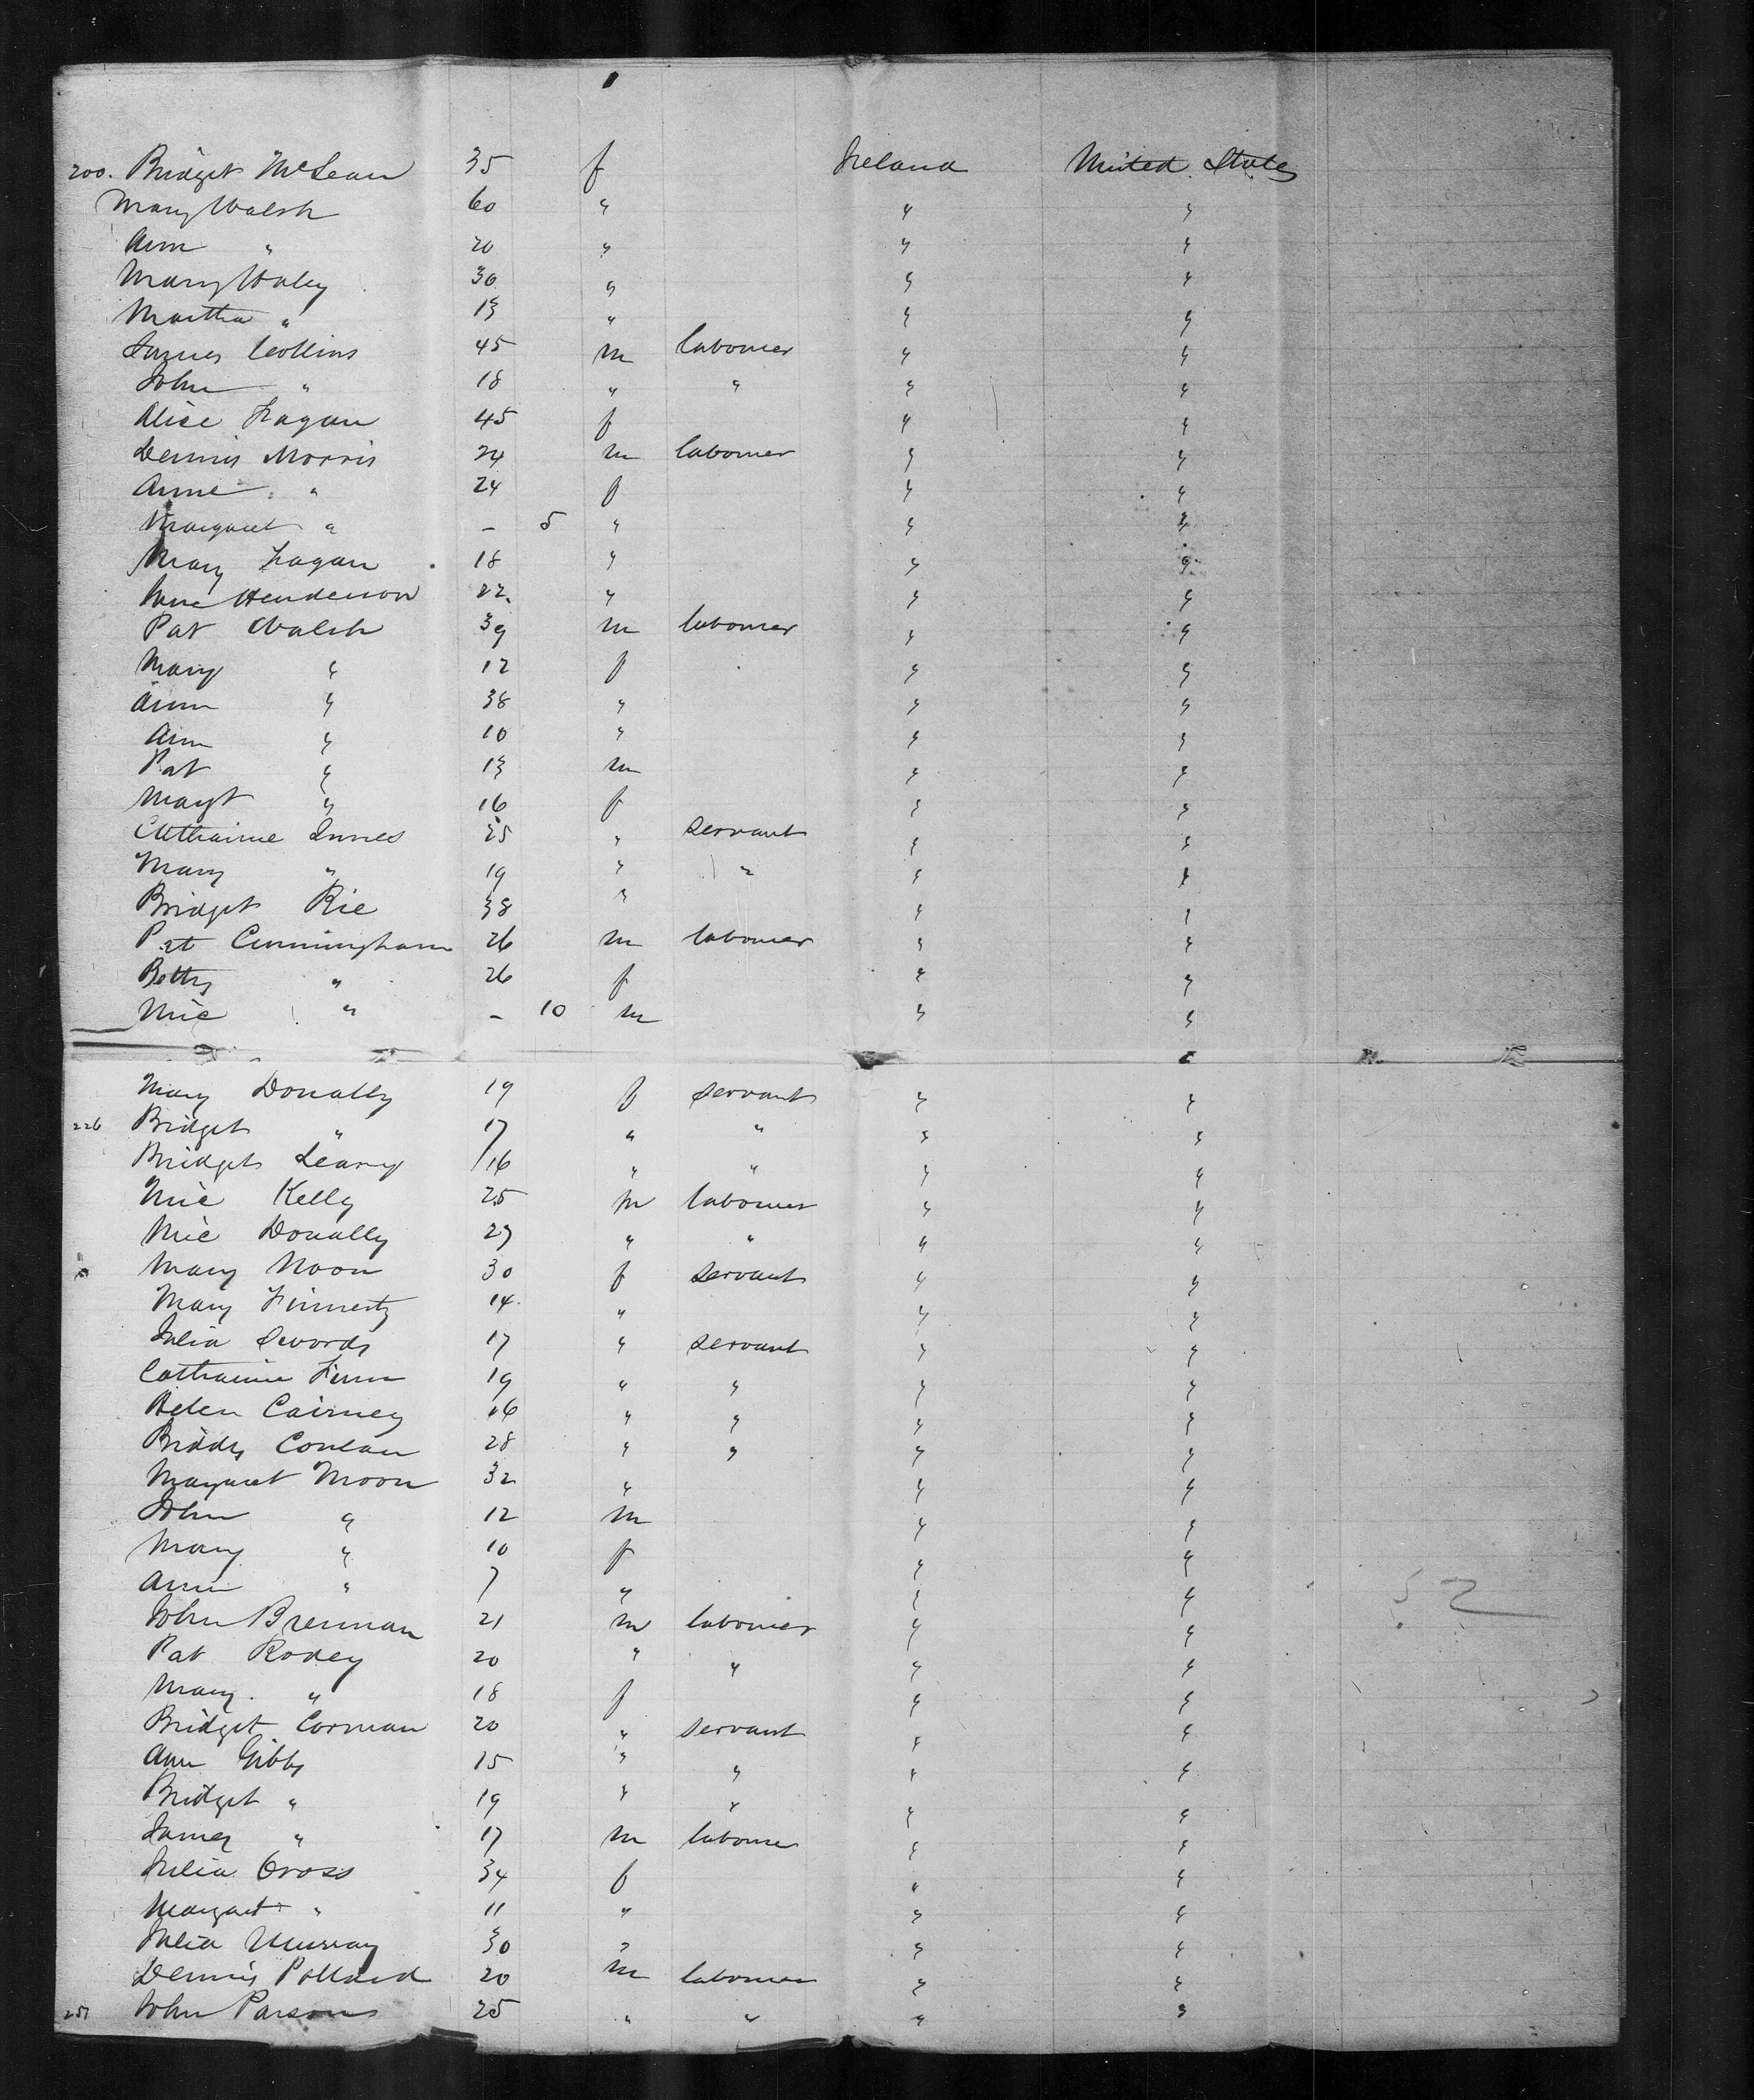 200. Bridget McLean 35 f Ireland United States
Mary Walsh 60 " " "
Ann " 20 " " "
Mary Haley 30 " " "
Martha " 13 " " "
James Collins 45 m labourer " "
John " 18 " " " "
Alice Fagan 45 f " "
Dennis Morris 24 m labourer " "
Anne " 24 f " "
Margaret " - 5 " " "
Mary Fagan 18 " " "
Jane Henderson 22 " " "
Pat Walsh 39 m labourer " "
Mary " 12 f " "
Ann " 38 " " "
Ann " 10 " " "
Pat " 13 m " "
Margt " 16 f " "
Catharine Innes 35 " servant " "
Mary " 19 " " " "
Bridget Rie 38 " " "
Pat Cunningham 26 m labourer " "
Betty " 26 f " "
Mic " - 10 m " "
Mary Donally 19 f servant " "
226 Bridget " 17 " " " "
Bridget Leary 16 " " " "
Mic Kelly 25 m labourer " "
Mic Donally 27 " " " "
Mary Noon 30 f servant " "
Mary Finnerty 14 " " "
Julia Swords 17 " servant " "
Catharine Finn 19 " " " "
Helen Cairney 16 " " " "
Biddy Conlan 28 " " " "
Margaret Moon 32 " " "
John " 12 m " "
Mary " 10 f " "
Ann " 7 " " "
John Brennan 21 m labourer " "
Pat Rodey 20 " " " "
Mary " 18 f " "
Bridget Corman 20 " servant " "
Ann Gibbs 15 " " " "
Bridget " 19 " " " "
James " 17 m labourer " "
Julia Cross 34 f " "
Margaret " 11 " " "
Julia Murray 30 " " "
Dennis Pollard 20 m labourer " "
251 John Parsons 25 " " " "
52